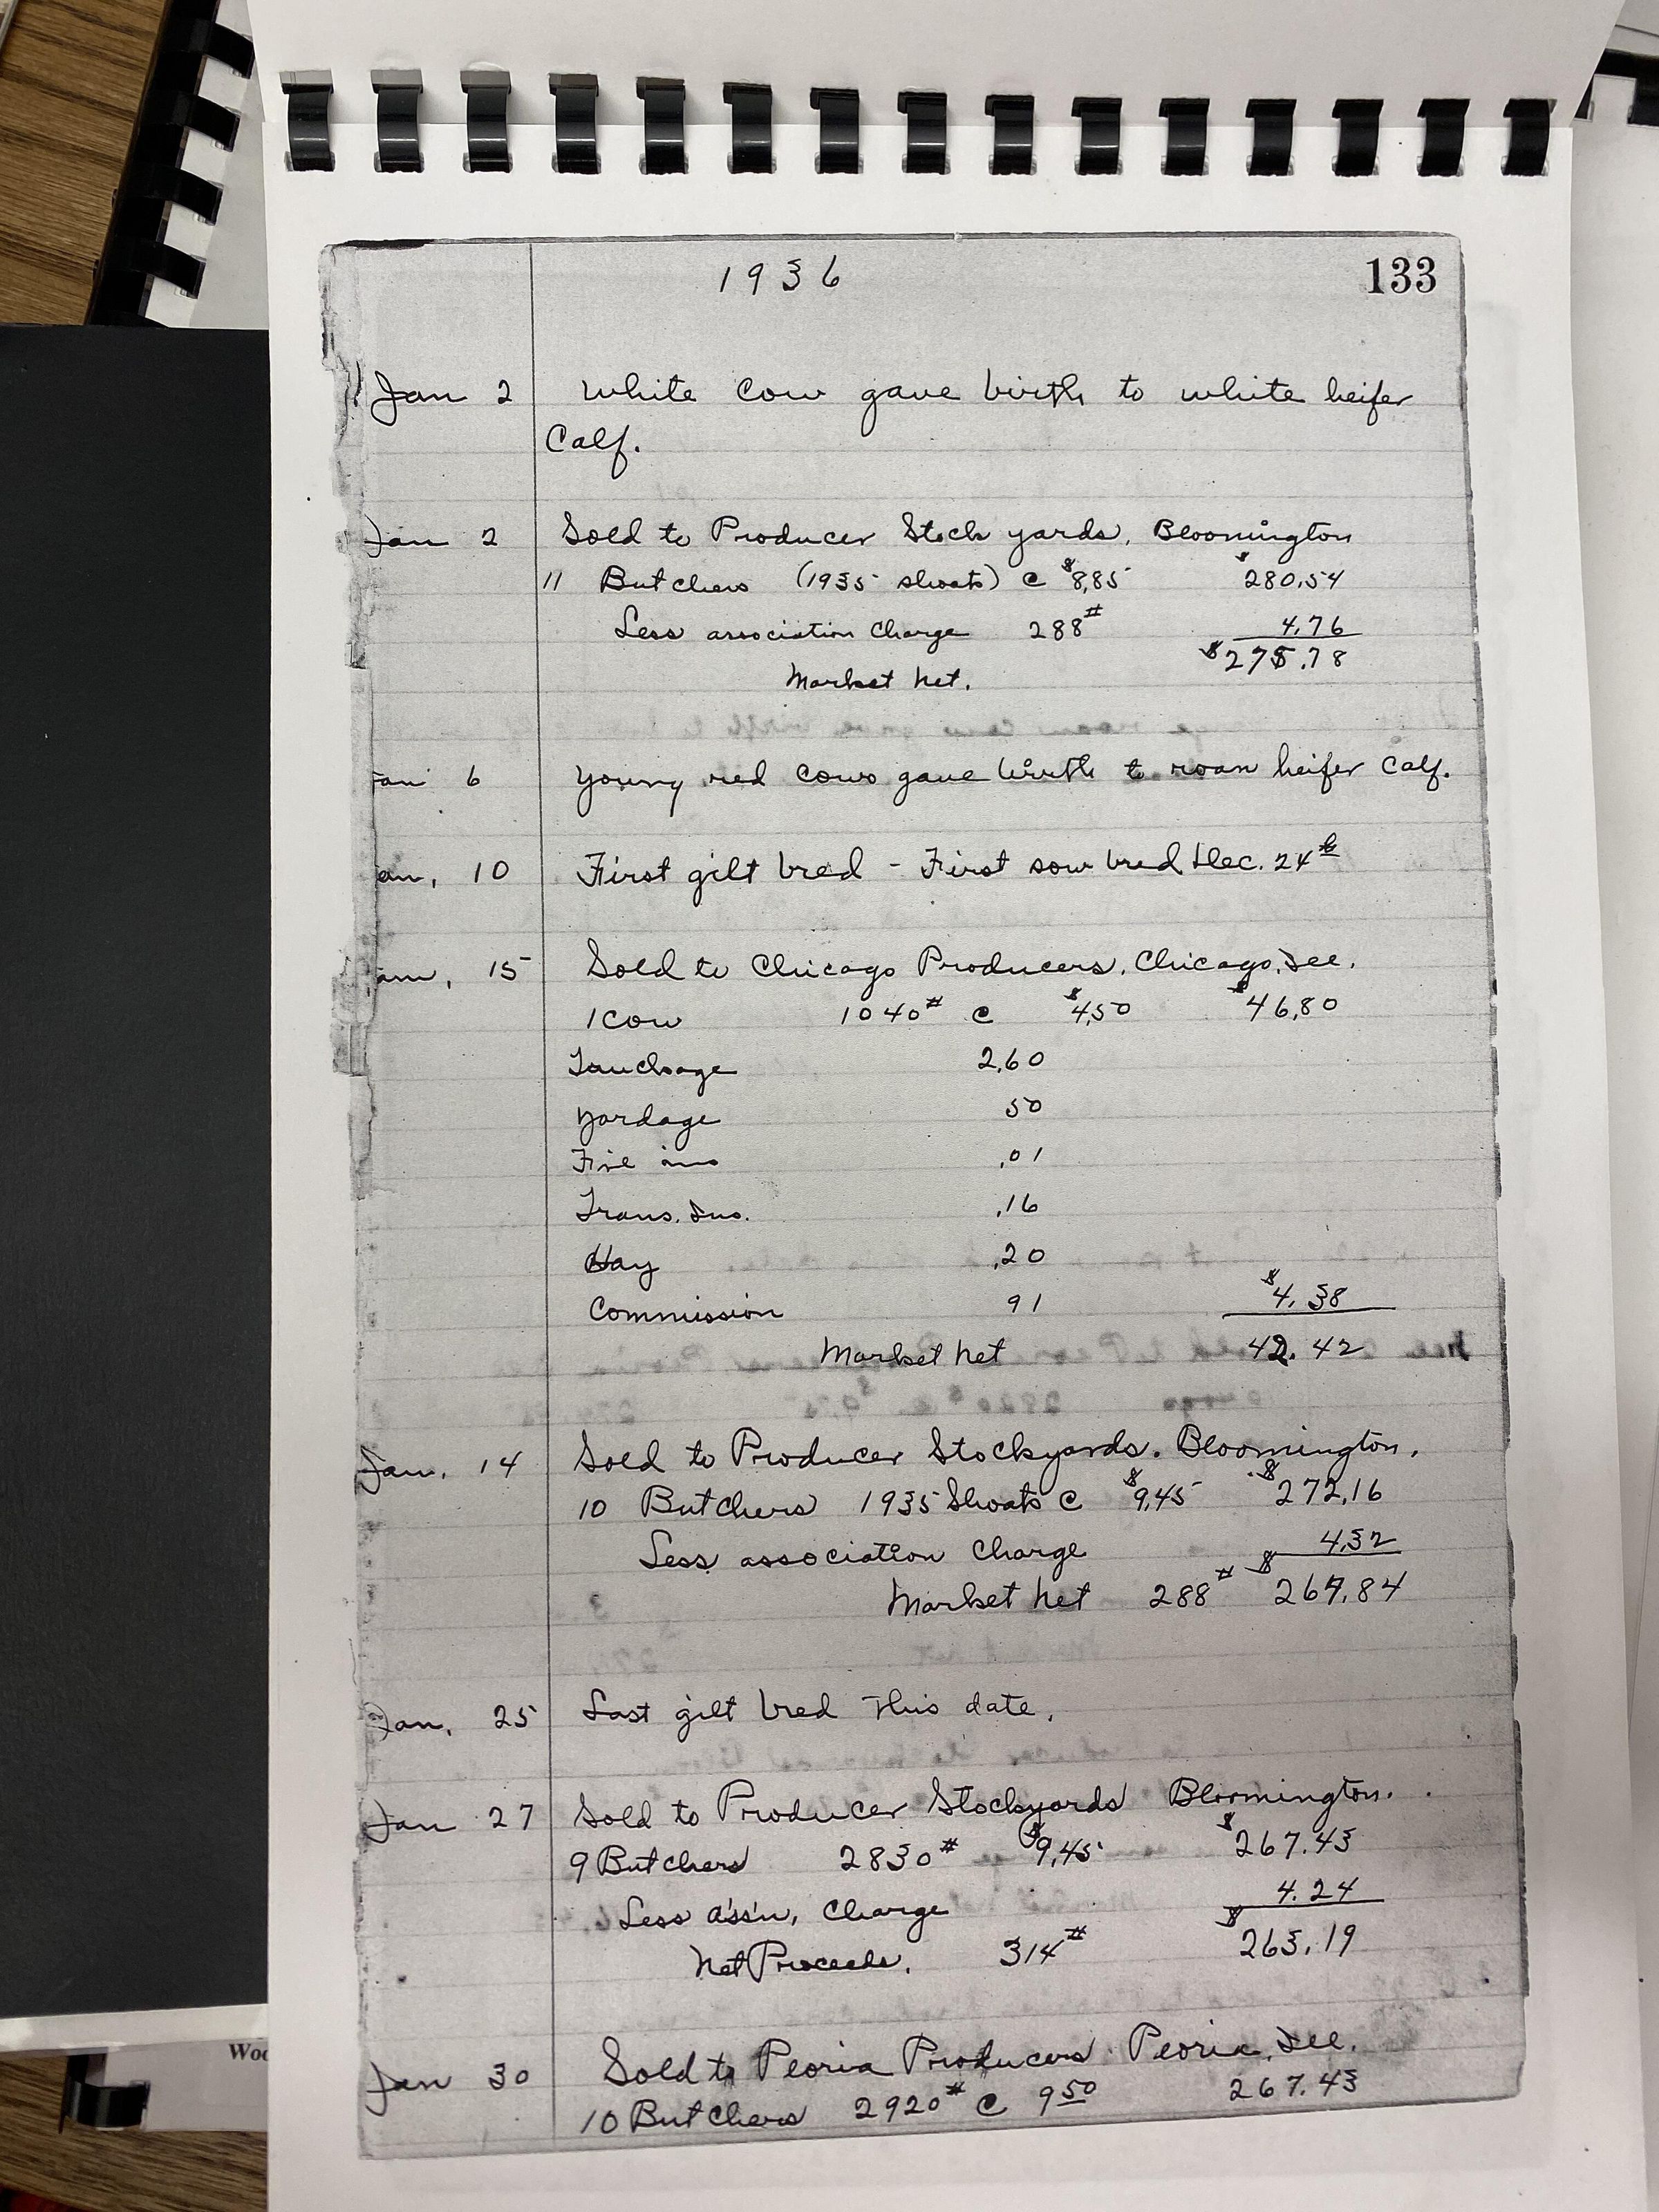 1936
133
Jan 2 White Cow gave birth to white heifer
Calf.
Jan 2 Sold to Producer Stock yards, Bloomington
11 Butchers (1935 shoats) @ $8.85 $280.54
Less association Charge 288# 4.76
$275.78
Market net.
Jan 6 Young red cow gave birth to roan heifer Calf.
an, 10 First gilt bred - First sow bred Dec. 24th
an, 15 Sold to Chicago Producers, Chicago, Ill.
1 Cow 1040# @ $4.50 $46.80
2.60
Yardage 50
Fire ins .01
Trans. Ins. .16
Hay .20
Commission 91 $4.38
Market net 42.42
Jan. 14 Sold to Producer Stockyards. Bloomington.
10 Butchers 1935 Shoats @ $9.45 $272.16
Less association Charge 4.32
Market net 288# $267.84
Jan, 25 Last gilt bred This date.
Jan 27 Sold to Producer Stockyards Bloomington.
9 Butchers 2830# $9.45 $267.43
Less ass'n, Charge 4.24
Net Proceeds. 314# $263.19
Jan 30 Sold to Peoria Producers Peoria, Ill.
10 Butchers 2920# @ 9 50 267.43
Woo